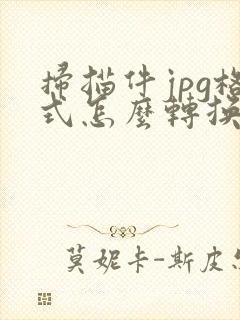 掃描件jpg格
式怎麼轉換
莫妮卡-斯皮